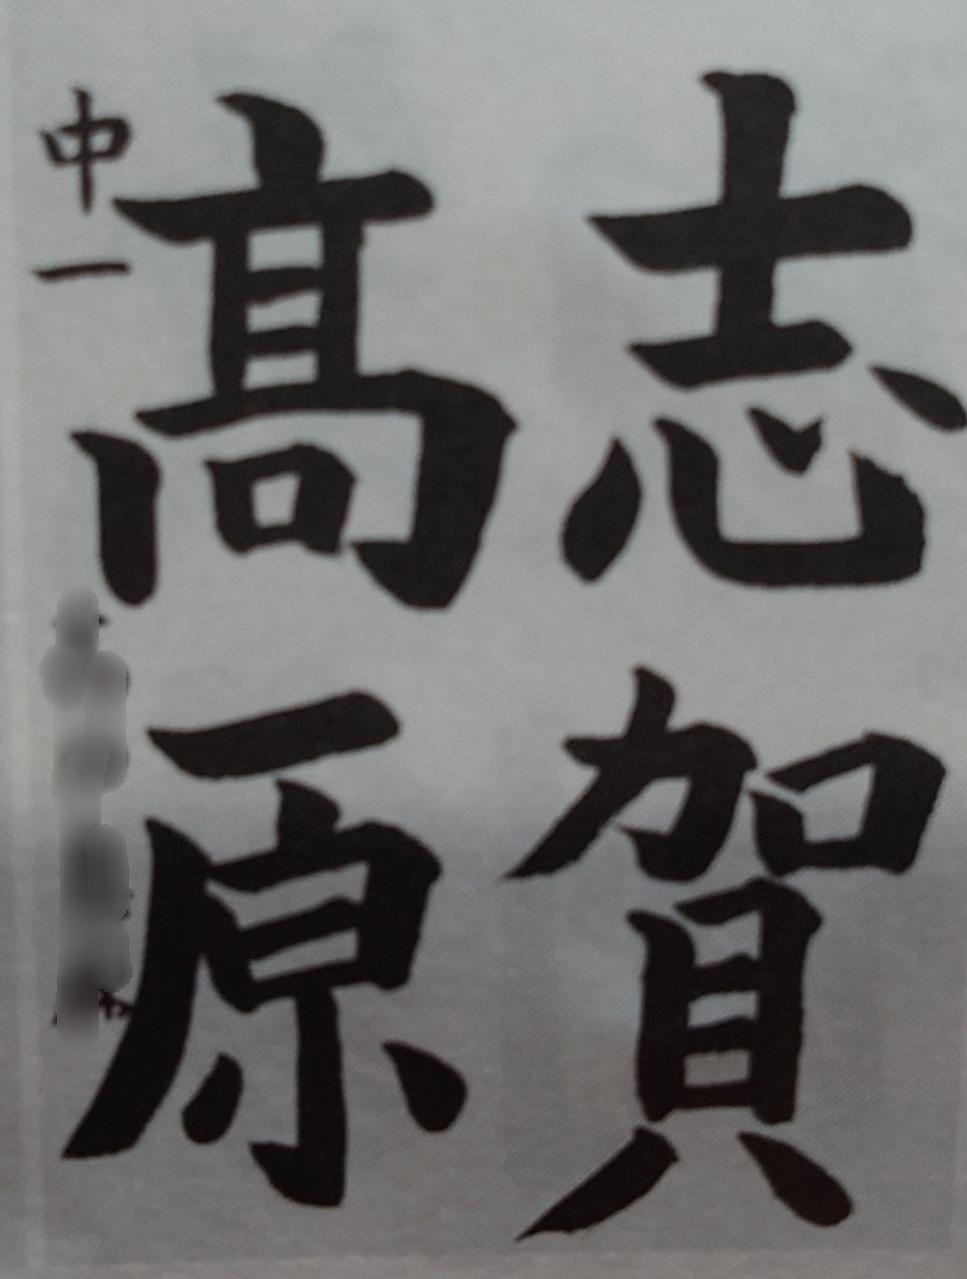 志賀
髙原
中一